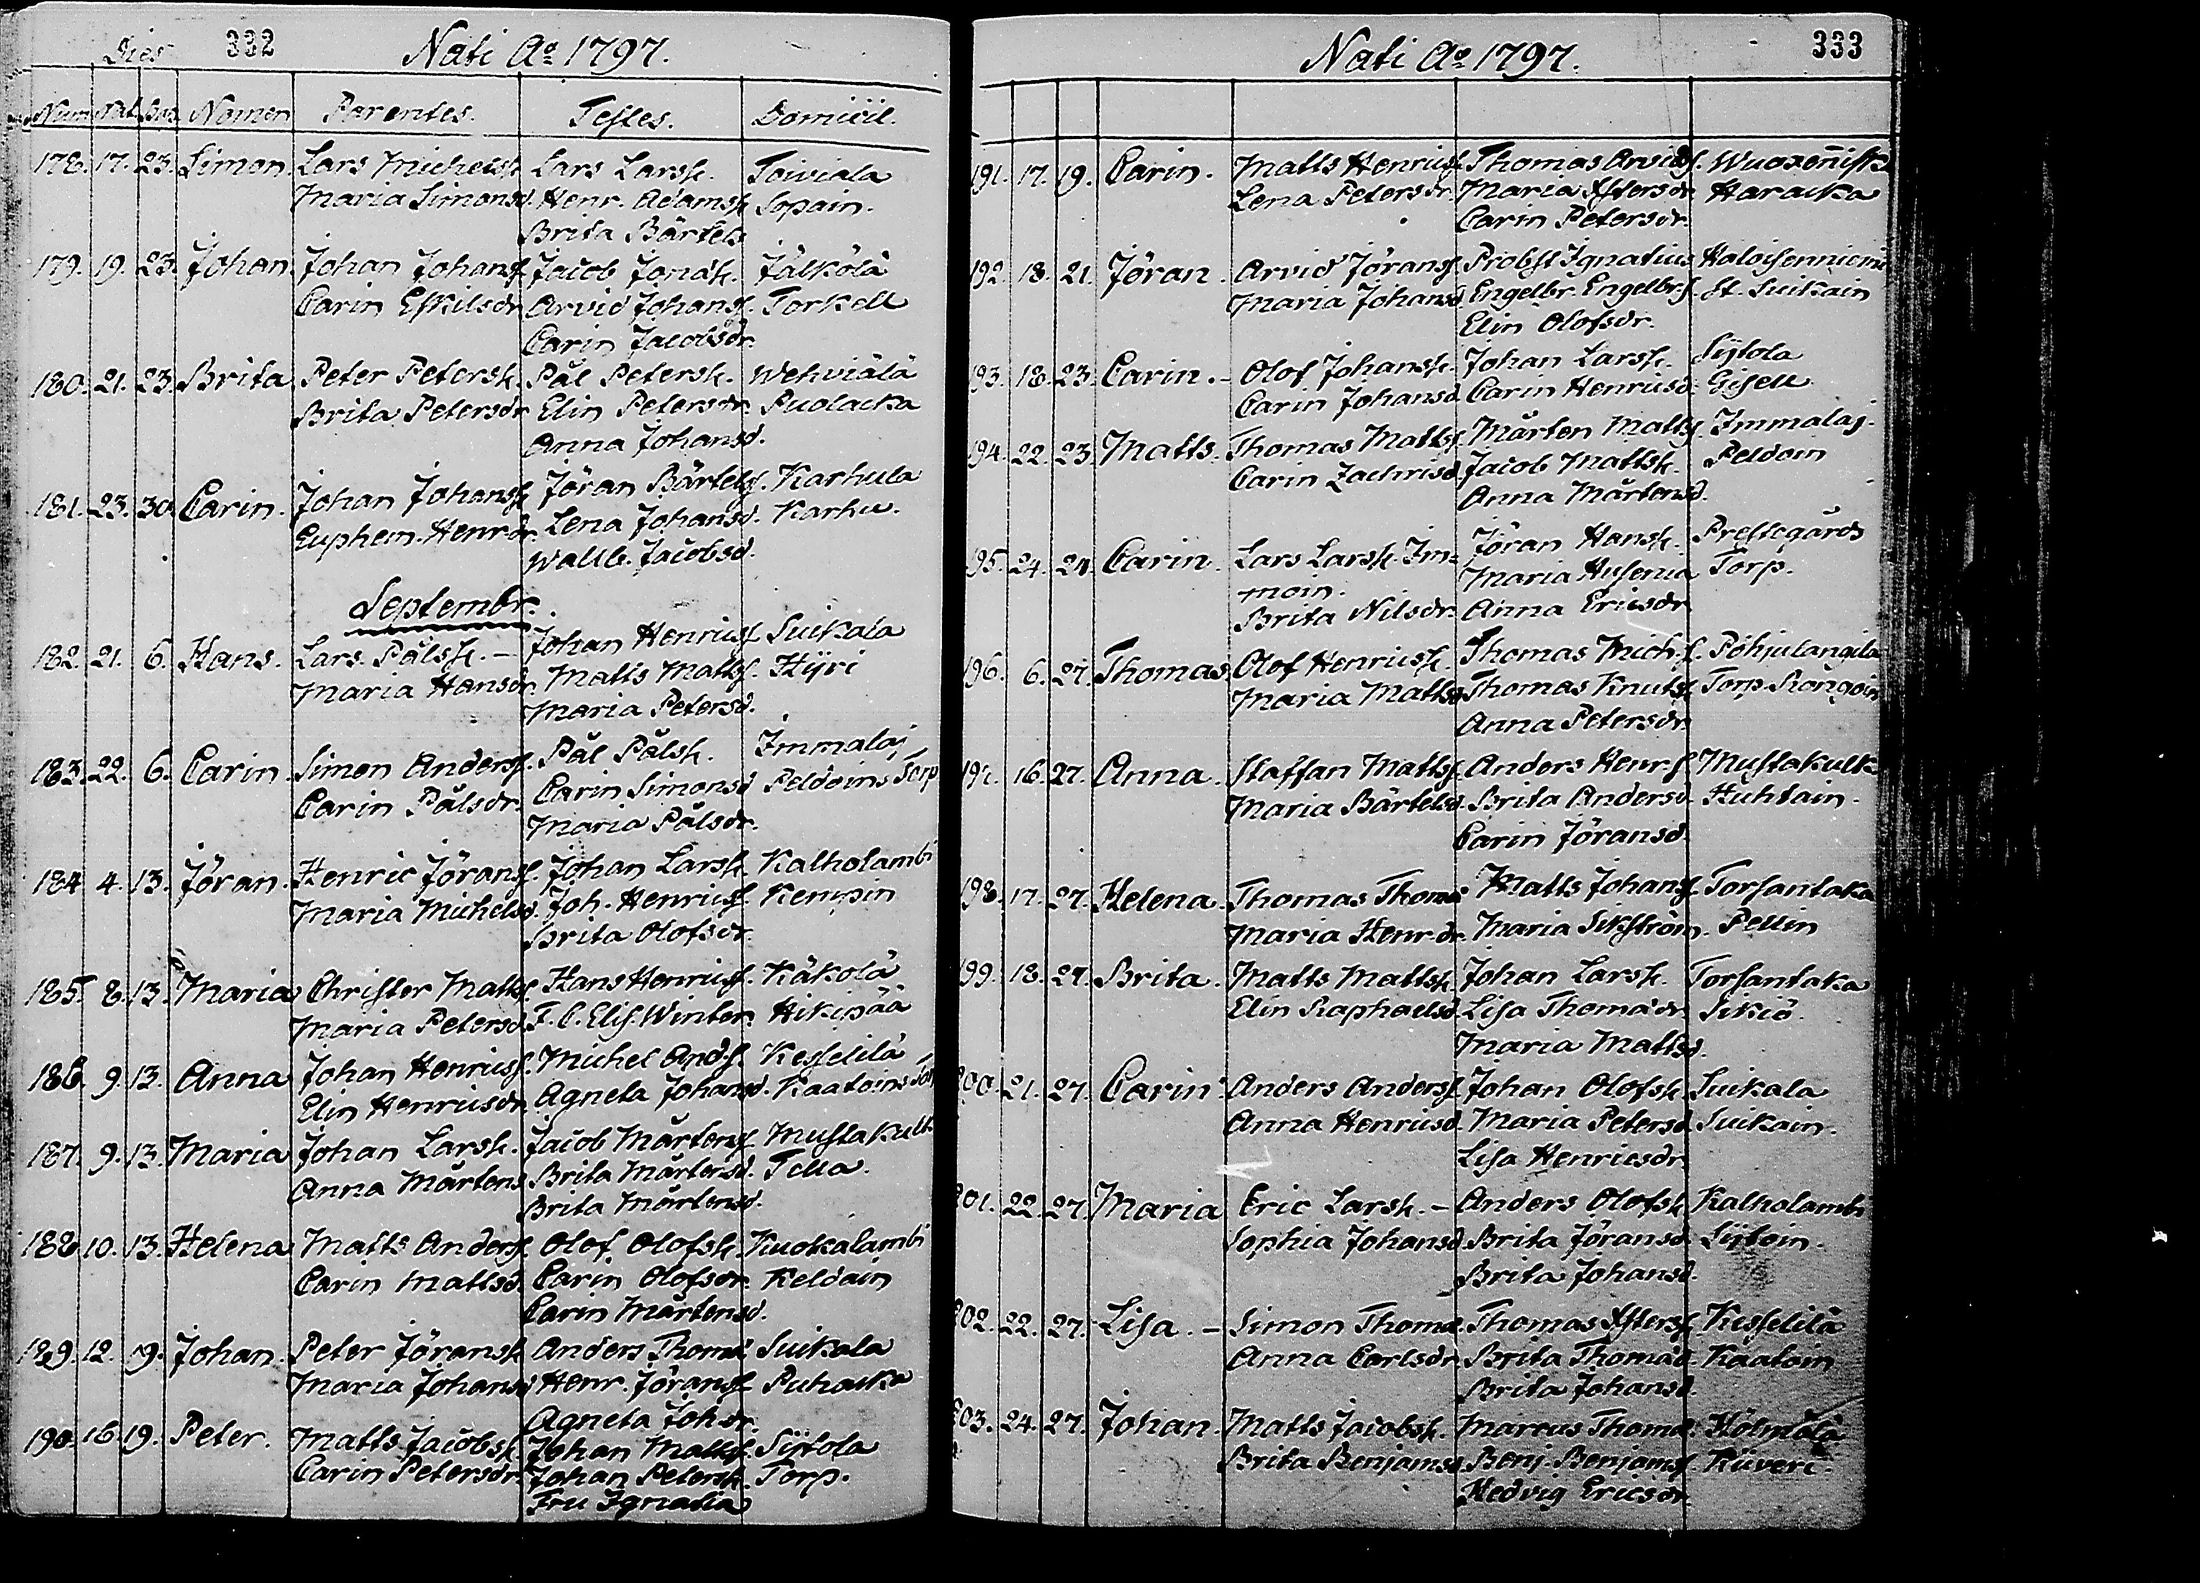 332 Nati Ao 1797.
Dies
Num Nat. Bap. Nomen Parentes. Testes. Domicil.
178. 17. 23. Simon. Lars Michelss. Lars Larss. Toiviala
Maria Simonsd. Henr. Adamss. Sopain.
Brita Bärtels
179. 19. 23. Johan. Johan Johanss. Jacob Jonass. Jälkölä
Carin Eskilsdr. Arvid Johanss. Torkell
Carin Jacobsdr.
180. 21. 23. Brita Peter Peterss. Pål Peterss. Wehviälä
Brita Petersdr. Elin Petersdr. Puolacka
Anna Johansd.
181. 23. 30. Carin. Johan Johanss. Jöran Bärtelss. Karhula
Euphem. Henr.dr. Lena Johansd. Karhu.
Wallb. Jacobsd.
Septembr.
182. 21. 6. Hans. Lars Pålss. Johan Henricss. Suikala
Maria Hansdr. Matts Mattss. Hÿri
Maria Petersd.
183. 22. 6. Carin Simon Anderss. Pål Pålss. Immalaj.
Carin Pålsdr. Carin Simonsd. Peldoins Torp
Maria Pålsdr.
184. 4. 13. Jöran. Henric Jöranss. Johan Larss. Kalholambi
Maria Michelsd. Joh. Henricss. Kempin
Brita Olofsdr.
185. 8. 13. Maria Christer Mattss. Hans Henricss. Käkölä
Maria Petersd. F. C. Elis. Winter. Hikipää
186. 9. 13. Anna Johan Henricss. Michel Andss. Kesselilä
Elin Henricsdr. Agneta Johansd. Kaatoins Torp
187. 9. 13. Maria Johan Larss. Jacob Mårtenss. Mustakulk
Anna Mårtens. Brita Mårtensd. Tella.
Brita Mårtensd.
188. 10. 13. Helena Matts Anderss. Olof Olofss. Kuokalambi
Carin Mattsd. Carin Olofsdr. Keldain
Carin Mårtensd.
189. 12. 19. Johan Peter Jöranss. Anders Thomæ Suikala
Maria Johansd. Henr. Jöranss. Puhacka
Agneta Joh.dr.
190. 16. 19. Peter. Matts Jacobss. Johan Mattss. Sÿtola
Carin Petersdr. Johan Peterss. Torp.
Fru Ignatia
Nati Ao 1797. 333
191. 17. 19. Carin. Matts Henricss. Thomas Arvidss. Wuoxenniska
Lena Petersdr. Maria Estersdr. Haracka
Carin Petersdr.
192. 18. 21. Jöran. Arvid Jöranss. Probst Ignatius Haloisenniemi
Maria Johansd. Engelbr. Engelbr.s. St. Suikain
Elin Olofsdr.
193. 18. 23. Carin. Olof Johanss. Johan Larss. Sÿtola
Carin Johansd. Carin Henricsd. Gisell
194. 22. 23. Matts. Thomas Mattss. Mårten Mattss. Immalaj.
Carin Zachrisd. Jacob Mattss. Peldoin
Anna Mårtensd.
195. 24. 24. Carin. Lars Larss. Im= Jöran Hanss. Prestegårds
moin. Maria Husenia Torp.
Brita Nilsdr. Anna Ericsdr.
196. 6. 27. Thomas. Olof Henricss. Thomas Mich.s. Pohjulangila
Maria Mattsd. Thomas Knutss. Torp Rongoin
Anna Petersdr.
197. 16. 27. Anna. Staffan Mattss. Anders Henr.s. Mustakulk
Maria Bärtelsd. Brita Andersd. Huhtain.
Carin Jöransd.
198. 17. 27. Helena. Thomas Thomæ Matts Johanss. Torsantaka
Maria Henr.dr. Maria Sikström. Pellin
199. 18. 27. Brita. Matts Mattss. Johan Larss. Torsantaka
Elin Raphaelsd. Lisa Thomædr. Sikiö.
Maria Mattsd.
200. 21. 27. Carin Anders Anderss. Johan Olofss. Suikala
Anna Henricsd. Maria Petersd. Suikain.
Lisa Henricsdr.
201. 22. 27. Maria Eric Larss. Anders Olofss. Kalholambi
Sophia Johansd. Brita Jöransd. Sÿtoin.
Brita Johansd.
202. 22. 27. Lisa. Simon Thomæ. Thomas Esterss. Kesselilä
Anna Carlsdr. Brita Thomæd. Kaatoin
Brita Johansd.
203. 24. 27. Johan. Matts Jacobss. Marcus Thomæ. Hölmölä
Brita Benjamsd. Benj. Benjamss. Kiiveri.
Hedvig Ericsdr.